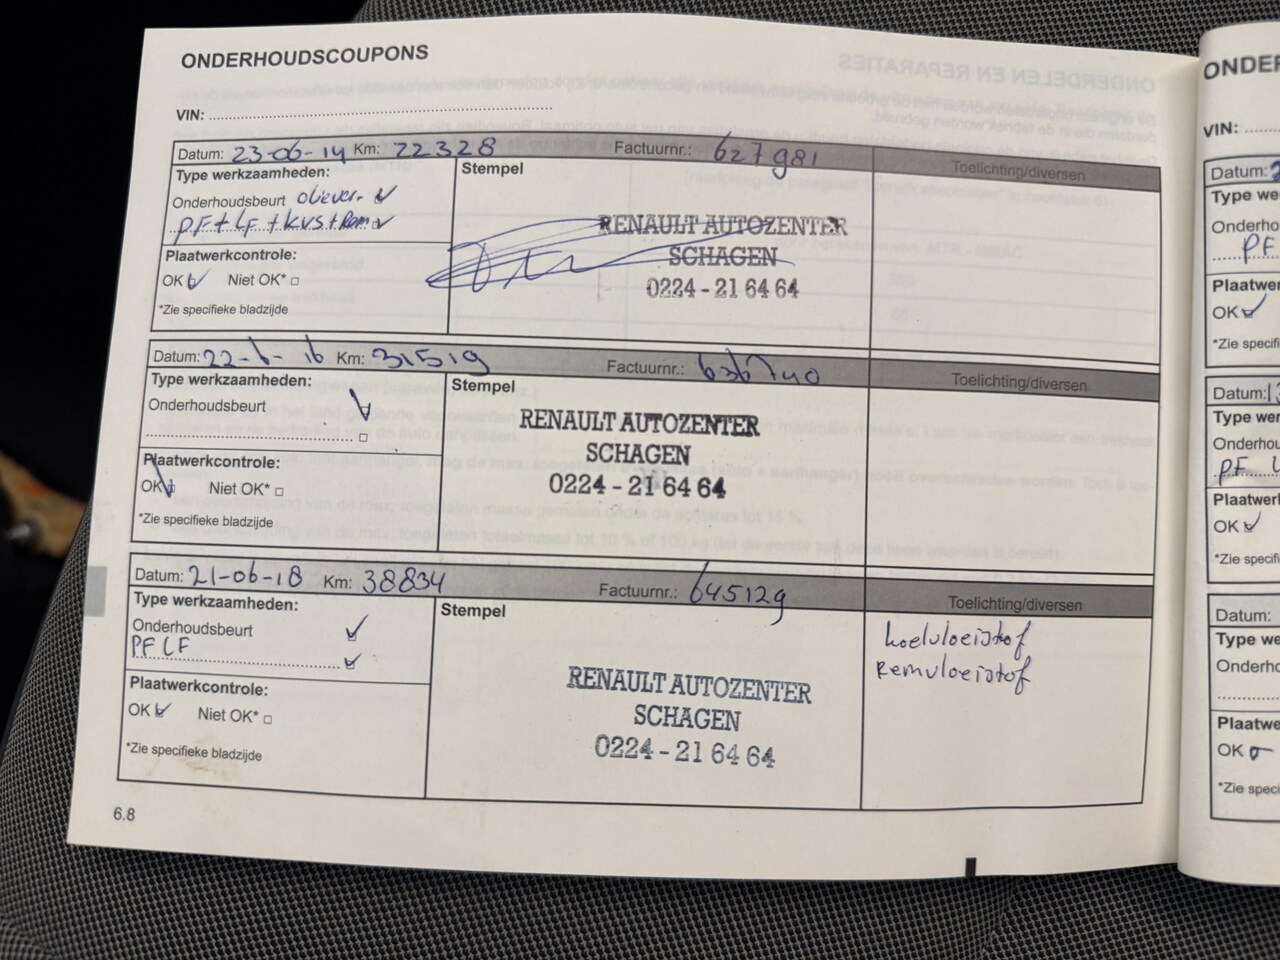 ONDERHOUDSCOUPONS
VIN:
Datum: 23-06-14 Km: 22328 Factuurnr.: 627981 Toelichting/diversen
Type werkzaamheden:
Stempel
Onderhoudsbeurt oliever.
PF + LF + KVS + Rem
RENAULT AUTOZENTER
SCHAGEN
0224 - 21 64 64
Plaatwerkcontrole:
OK Niet OK*
*Zie specifieke bladzijde
Datum: 22-6-16 Km: 31519 Factuurnr.: 636740 Toelichting/diversen
Type werkzaamheden:
Stempel
Onderhoudsbeurt
RENAULT AUTOZENTER
SCHAGEN
0224 - 21 64 64
Plaatwerkcontrole:
OK Niet OK*
*Zie specifieke bladzijde
Datum: 21-06-18 Km: 38834 Factuurnr.: 645129 Toelichting/diversen
Type werkzaamheden:
Stempel
Onderhoudsbeurt
PF LF
koelvloeistof
Remvloeistof
RENAULT AUTOZENTER
SCHAGEN
0224 - 21 64 64
Plaatwerkcontrole:
OK Niet OK*
*Zie specifieke bladzijde
6.8
ONDER
VIN:
Datum:
Type we
Onderho
PF
Plaatwer
OK
*Zie specifi
Datum:
Type we
Onderhou
PF
Plaatwe
OK
*Zie specif
Datum:
Type we
Onderho
Plaatwe
OK
*Zie speci